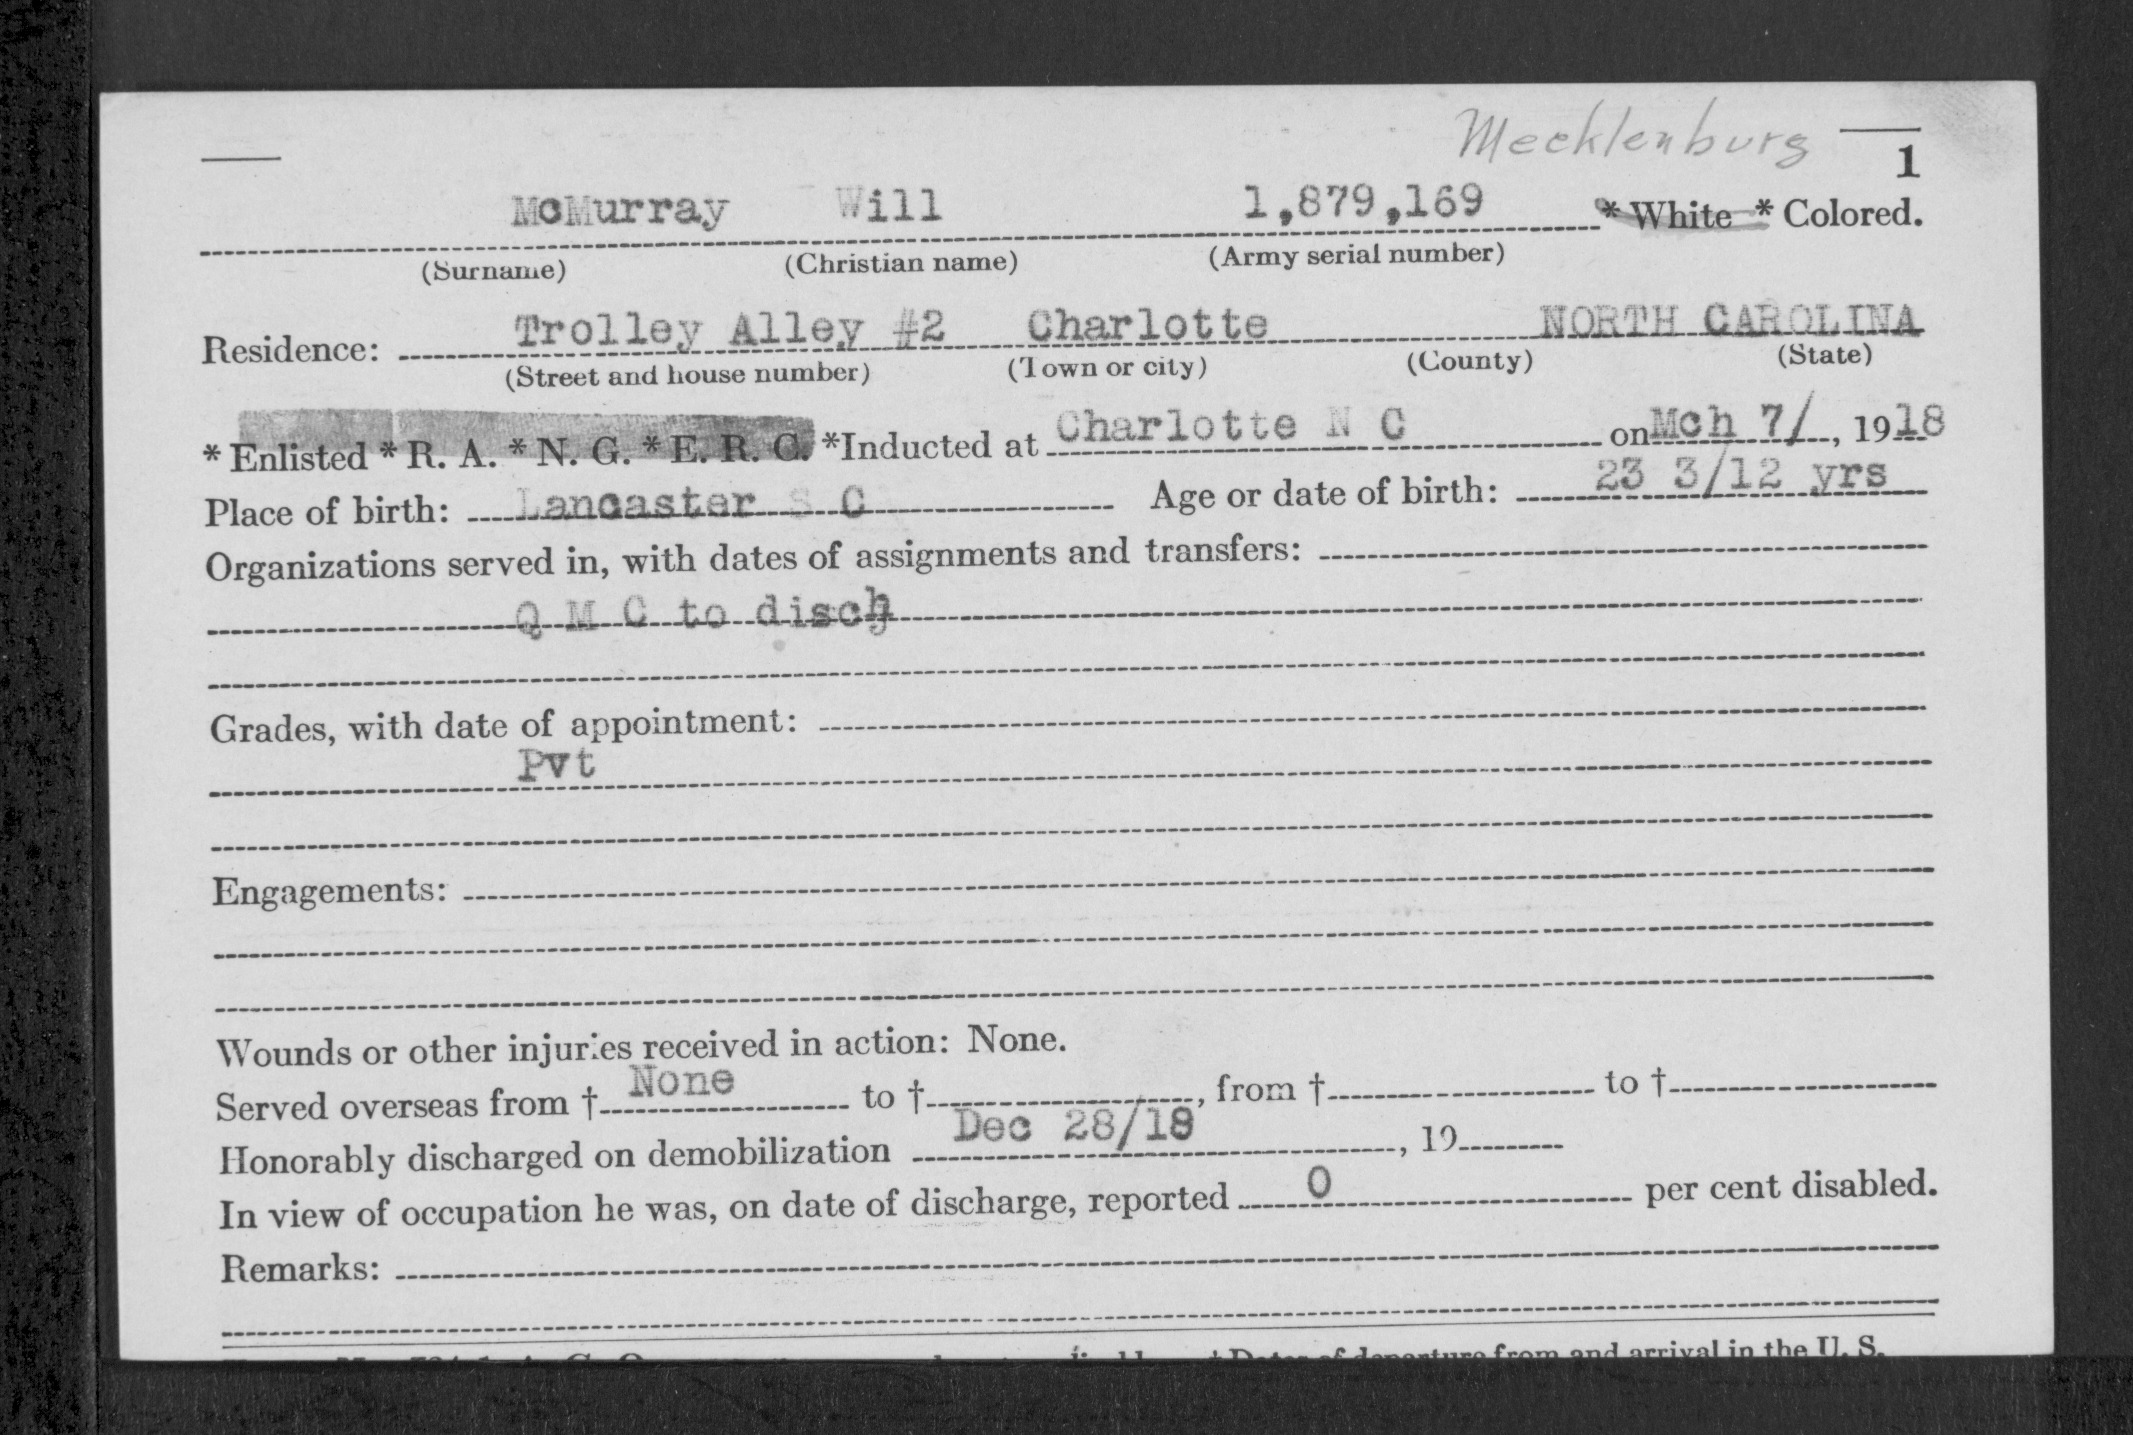 Mecklenburg
1
McMurray Will 1,879,169 * White * Colored.
(Surname) (Christian name) (Army serial number)
Residence: Trolley Alley #2 Charlotte NORTH CAROLINA
(Street and house number) (Town or city) (County) (State)
* Enlisted * R. A. * N. G. * E. R. C. *Inducted at Charlotte N C on Mch 7/, 1918
Place of birth: Lancaster S C Age or date of birth: 23 3/12 yrs
Organizations served in, with dates of assignments and transfers:
Q M C to disch
Grades, with date of appointment:
Pvt
Engagements:
Wounds or other injuries received in action: None.
Served overseas from † None to †, from † to †
Honorably discharged on demobilization Dec 28/18, 19
In view of occupation he was, on date of discharge, reported 0 per cent disabled.
Remarks:
† Dates of departure from and arrival in the U. S.